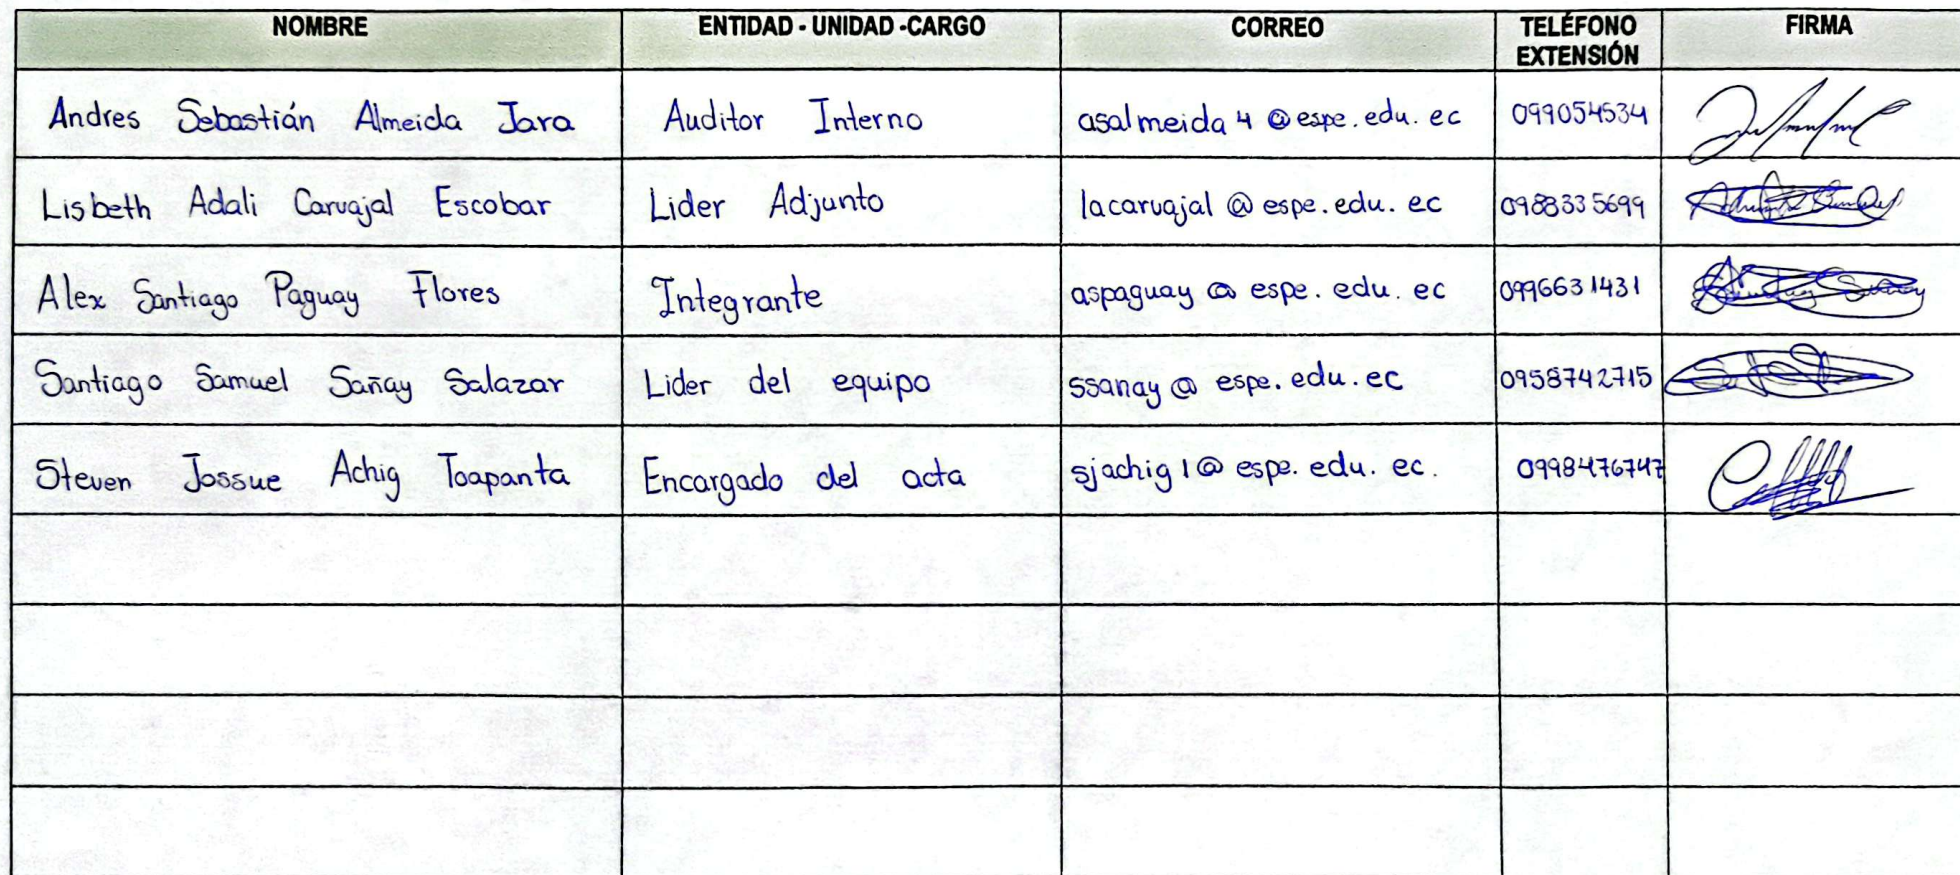 NOMBRE ENTIDAD - UNIDAD -CARGO CORREO TELÉFONO EXTENSIÓN FIRMA
Andres Sebastián Almeida Jara Auditor Interno asalmeida4@espe.edu.ec 099054534
Lisbeth Adali Carvajal Escobar Lider Adjunto lacarvajal@espe.edu.ec 0988335699
Alex Santiago Paguay Flores Integrante aspaguay@espe.edu.ec 0996631431
Santiago Samuel Sañay Salazar Lider del equipo ssanay@espe.edu.ec 0958742715
Steven Jossue Achig Toapanta Encargado del acta sjachig1@espe.edu.ec. 0998476747